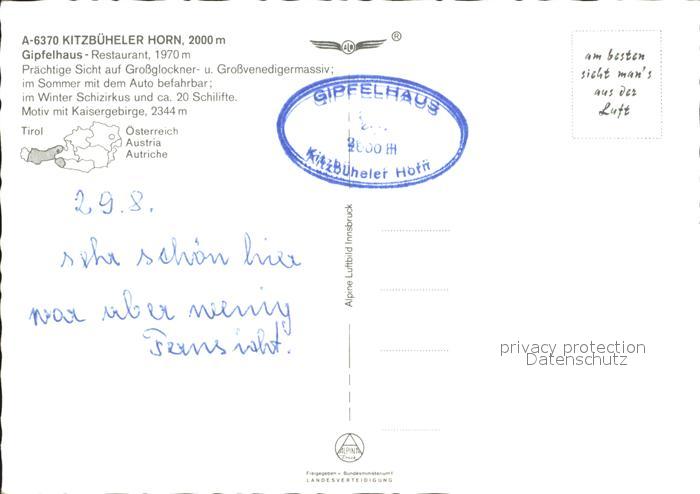 A-6370 KITZBÜHELER HORN, 2000 m
Gipfelhaus - Restaurant, 1970 m
Prächtige Sicht auf Großglockner- u. Großvenedigermassiv;
im Sommer mit dem Auto befahrbar;
im Winter Schizirkus und ca. 20 Schilifte.
Motiv mit Kaisergebirge, 2344 m
Tirol
Österreich
Austria
Autriche
®
GIPFELHAUS
2000 m
Kitzbüheler Horn
am besten
sieht man's
aus der
Luft
29.8.
sehr schön hier
war aber wenig
Fernsicht.
Alpine Luftbild Innsbruck
privacy protection
Datenschutz
ALPINE
Freigegeben v. Bundesministerium f.
LANDESVERTEIDIGUNG